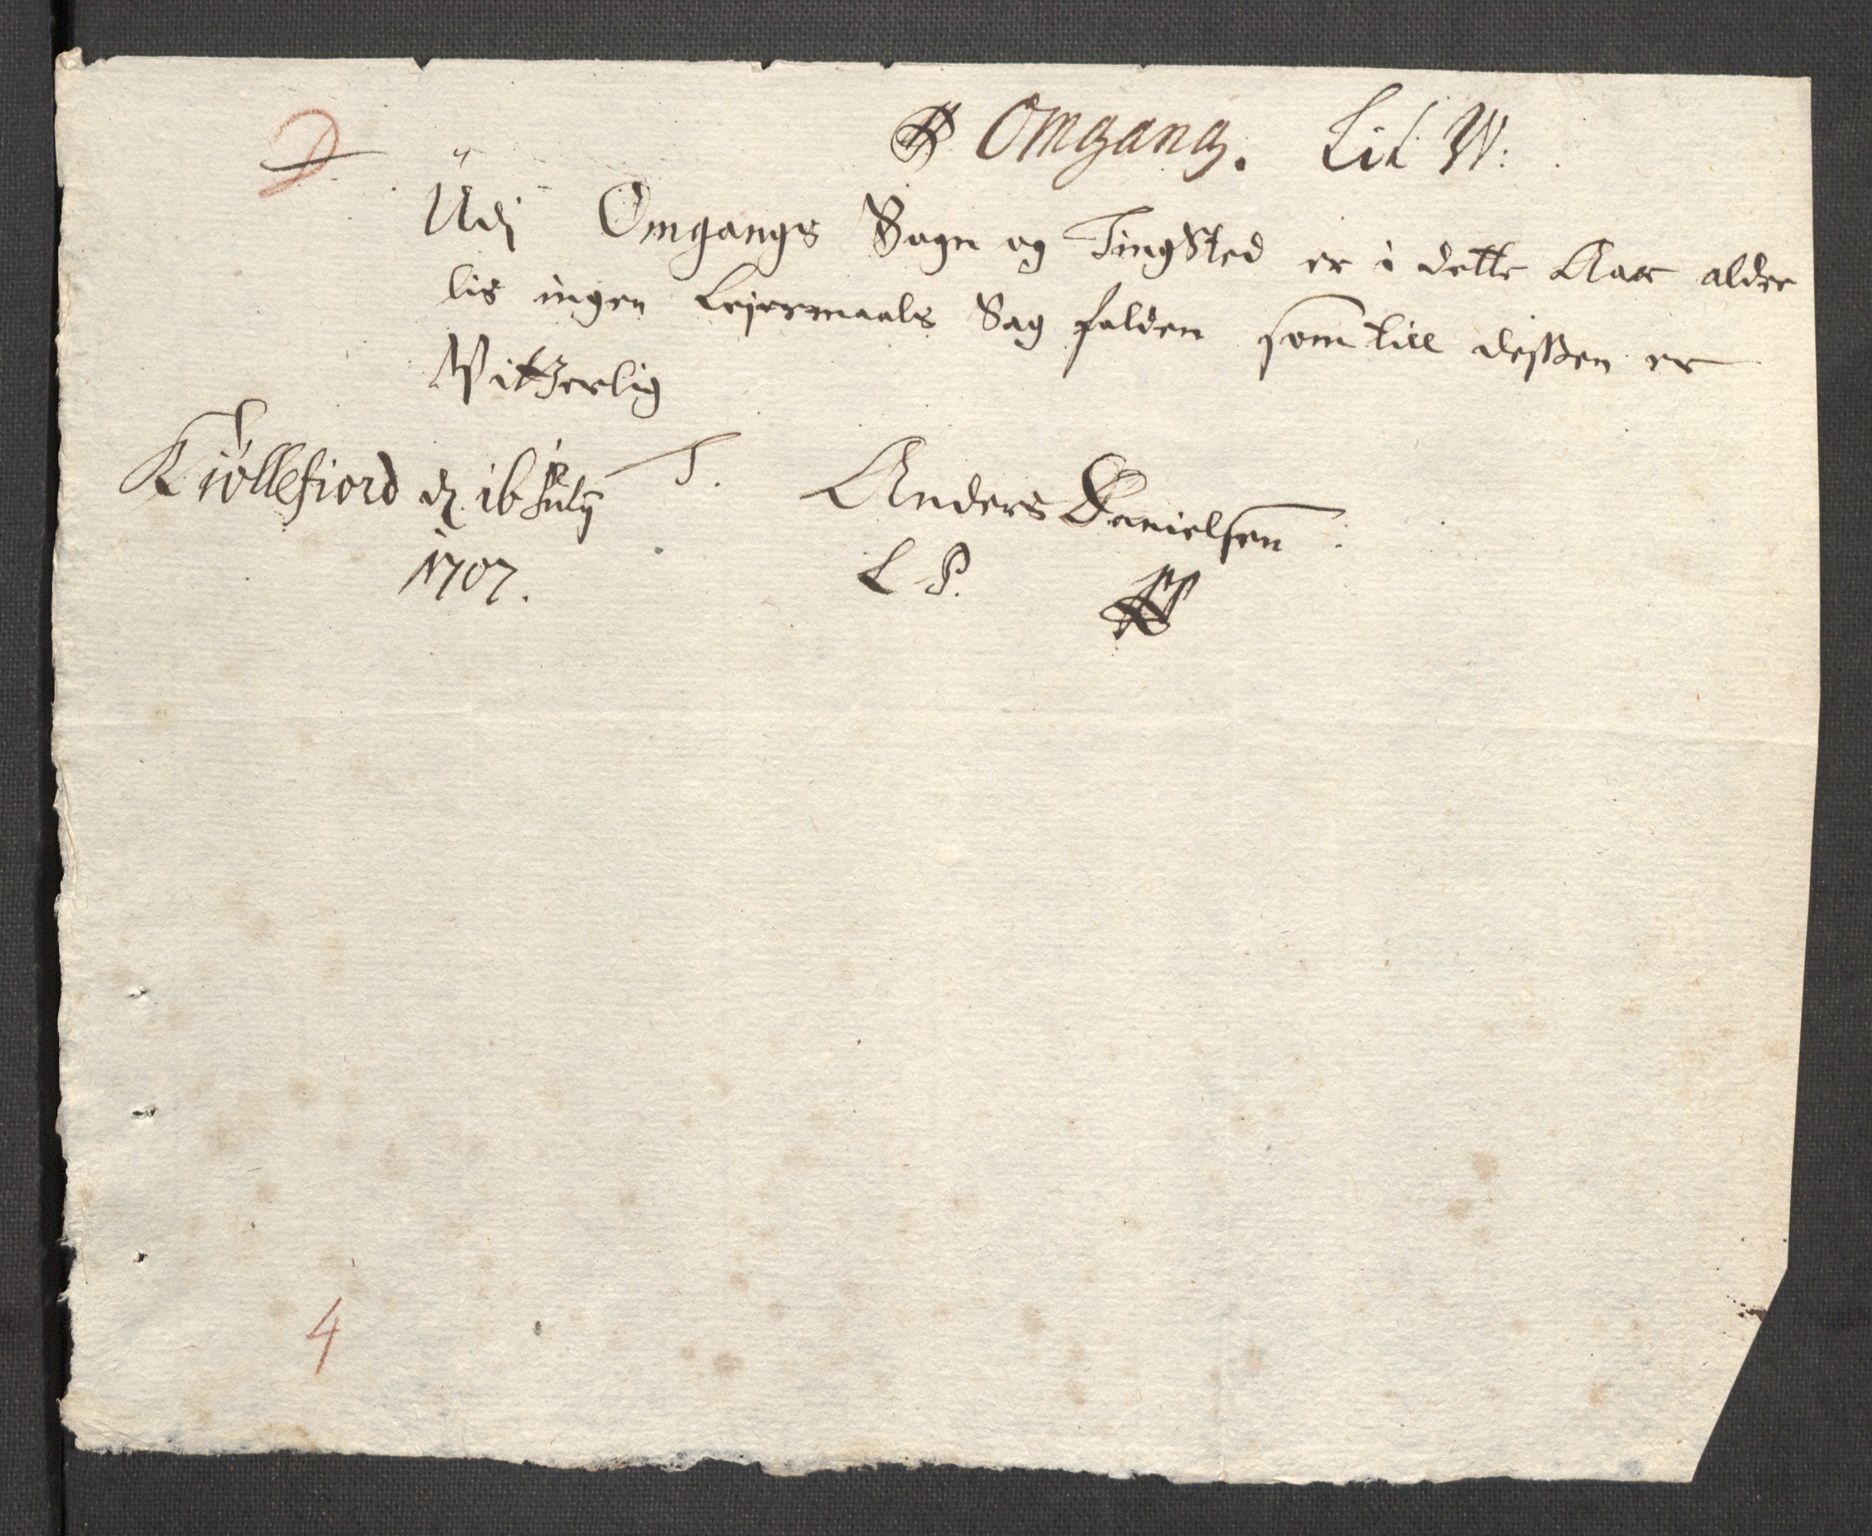 Omgang. Lit W:
Udj Omgangs Sogn og TingSted er i dette Aar alder
lis ingen Lejermaals Sag falden som till dessen er
Witterlig
Kiøllefiord d 16 July T. Anders Danielsen
1707. L S.
4